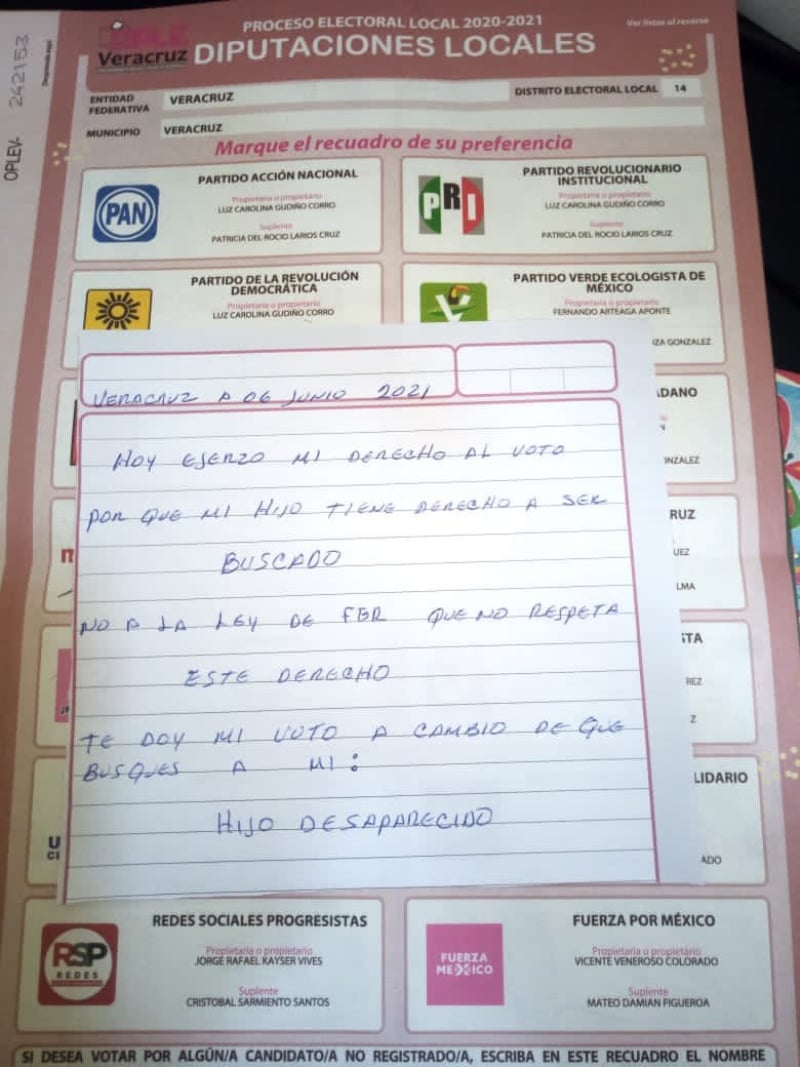 OPLEV- 242153
OPLE
Veracruz
PROCESO ELECTORAL LOCAL 2020-2021
DIPUTACIONES LOCALES
Ver listas al reverso
ENTIDAD FEDERATIVA
VERACRUZ
DISTRITO ELECTORAL LOCAL 14
MUNICIPIO
VERACRUZ
Marque el recuadro de su preferencia
PAN
PARTIDO ACCIÓN NACIONAL
Propietaria o propietario
LUZ CAROLINA GUDIÑO CORRO
Suplente
PATRICIA DEL ROCIO LARIOS CRUZ
PRI
PARTIDO REVOLUCIONARIO
INSTITUCIONAL
Propietaria o propietario
LUZ CAROLINA GUDIÑO CORRO
Suplente
PATRICIA DEL ROCIO LARIOS CRUZ
PARTIDO DE LA REVOLUCIÓN
DEMOCRÁTICA
Propietaria o propietario
LUZ CAROLINA GUDIÑO CORRO
PARTIDO VERDE ECOLOGISTA DE
MÉXICO
Propietaria o propietario
FERNANDO ARTEAGA APONTE
ZA GONZALEZ
DANO
NZALEZ
RUZ
UEZ
LMA
STA
REZ
Z
LIDARIO
ADO
VERACRUZ A 06 JUNIO 2021
HOY EJERZO MI DERECHO AL VOTO
POR QUE MI HIJO TIENE DERECHO A SER
BUSCADO
NO A LA LEY DE FGR QUE NO RESPETA
ESTE DERECHO
TE DOY MI VOTO A CAMBIO DE QUE
BUSQUES A MI:
HIJO DESAPARECIDO
RSP
REDES
REDES SOCIALES PROGRESISTAS
Propietaria o propietario
JORGE RAFAEL KAYSER VIVES
Suplente
CRISTOBAL SARMIENTO SANTOS
FUERZA
MEXICO
FUERZA POR MÉXICO
Propietaria o propietario
VICENTE VENEROSO COLORADO
Suplente
MATEO DAMIAN FIGUEROA
SI DESEA VOTAR POR ALGÚN/A CANDIDATO/A NO REGISTRADO/A, ESCRIBA EN ESTE RECUADRO EL NOMBRE